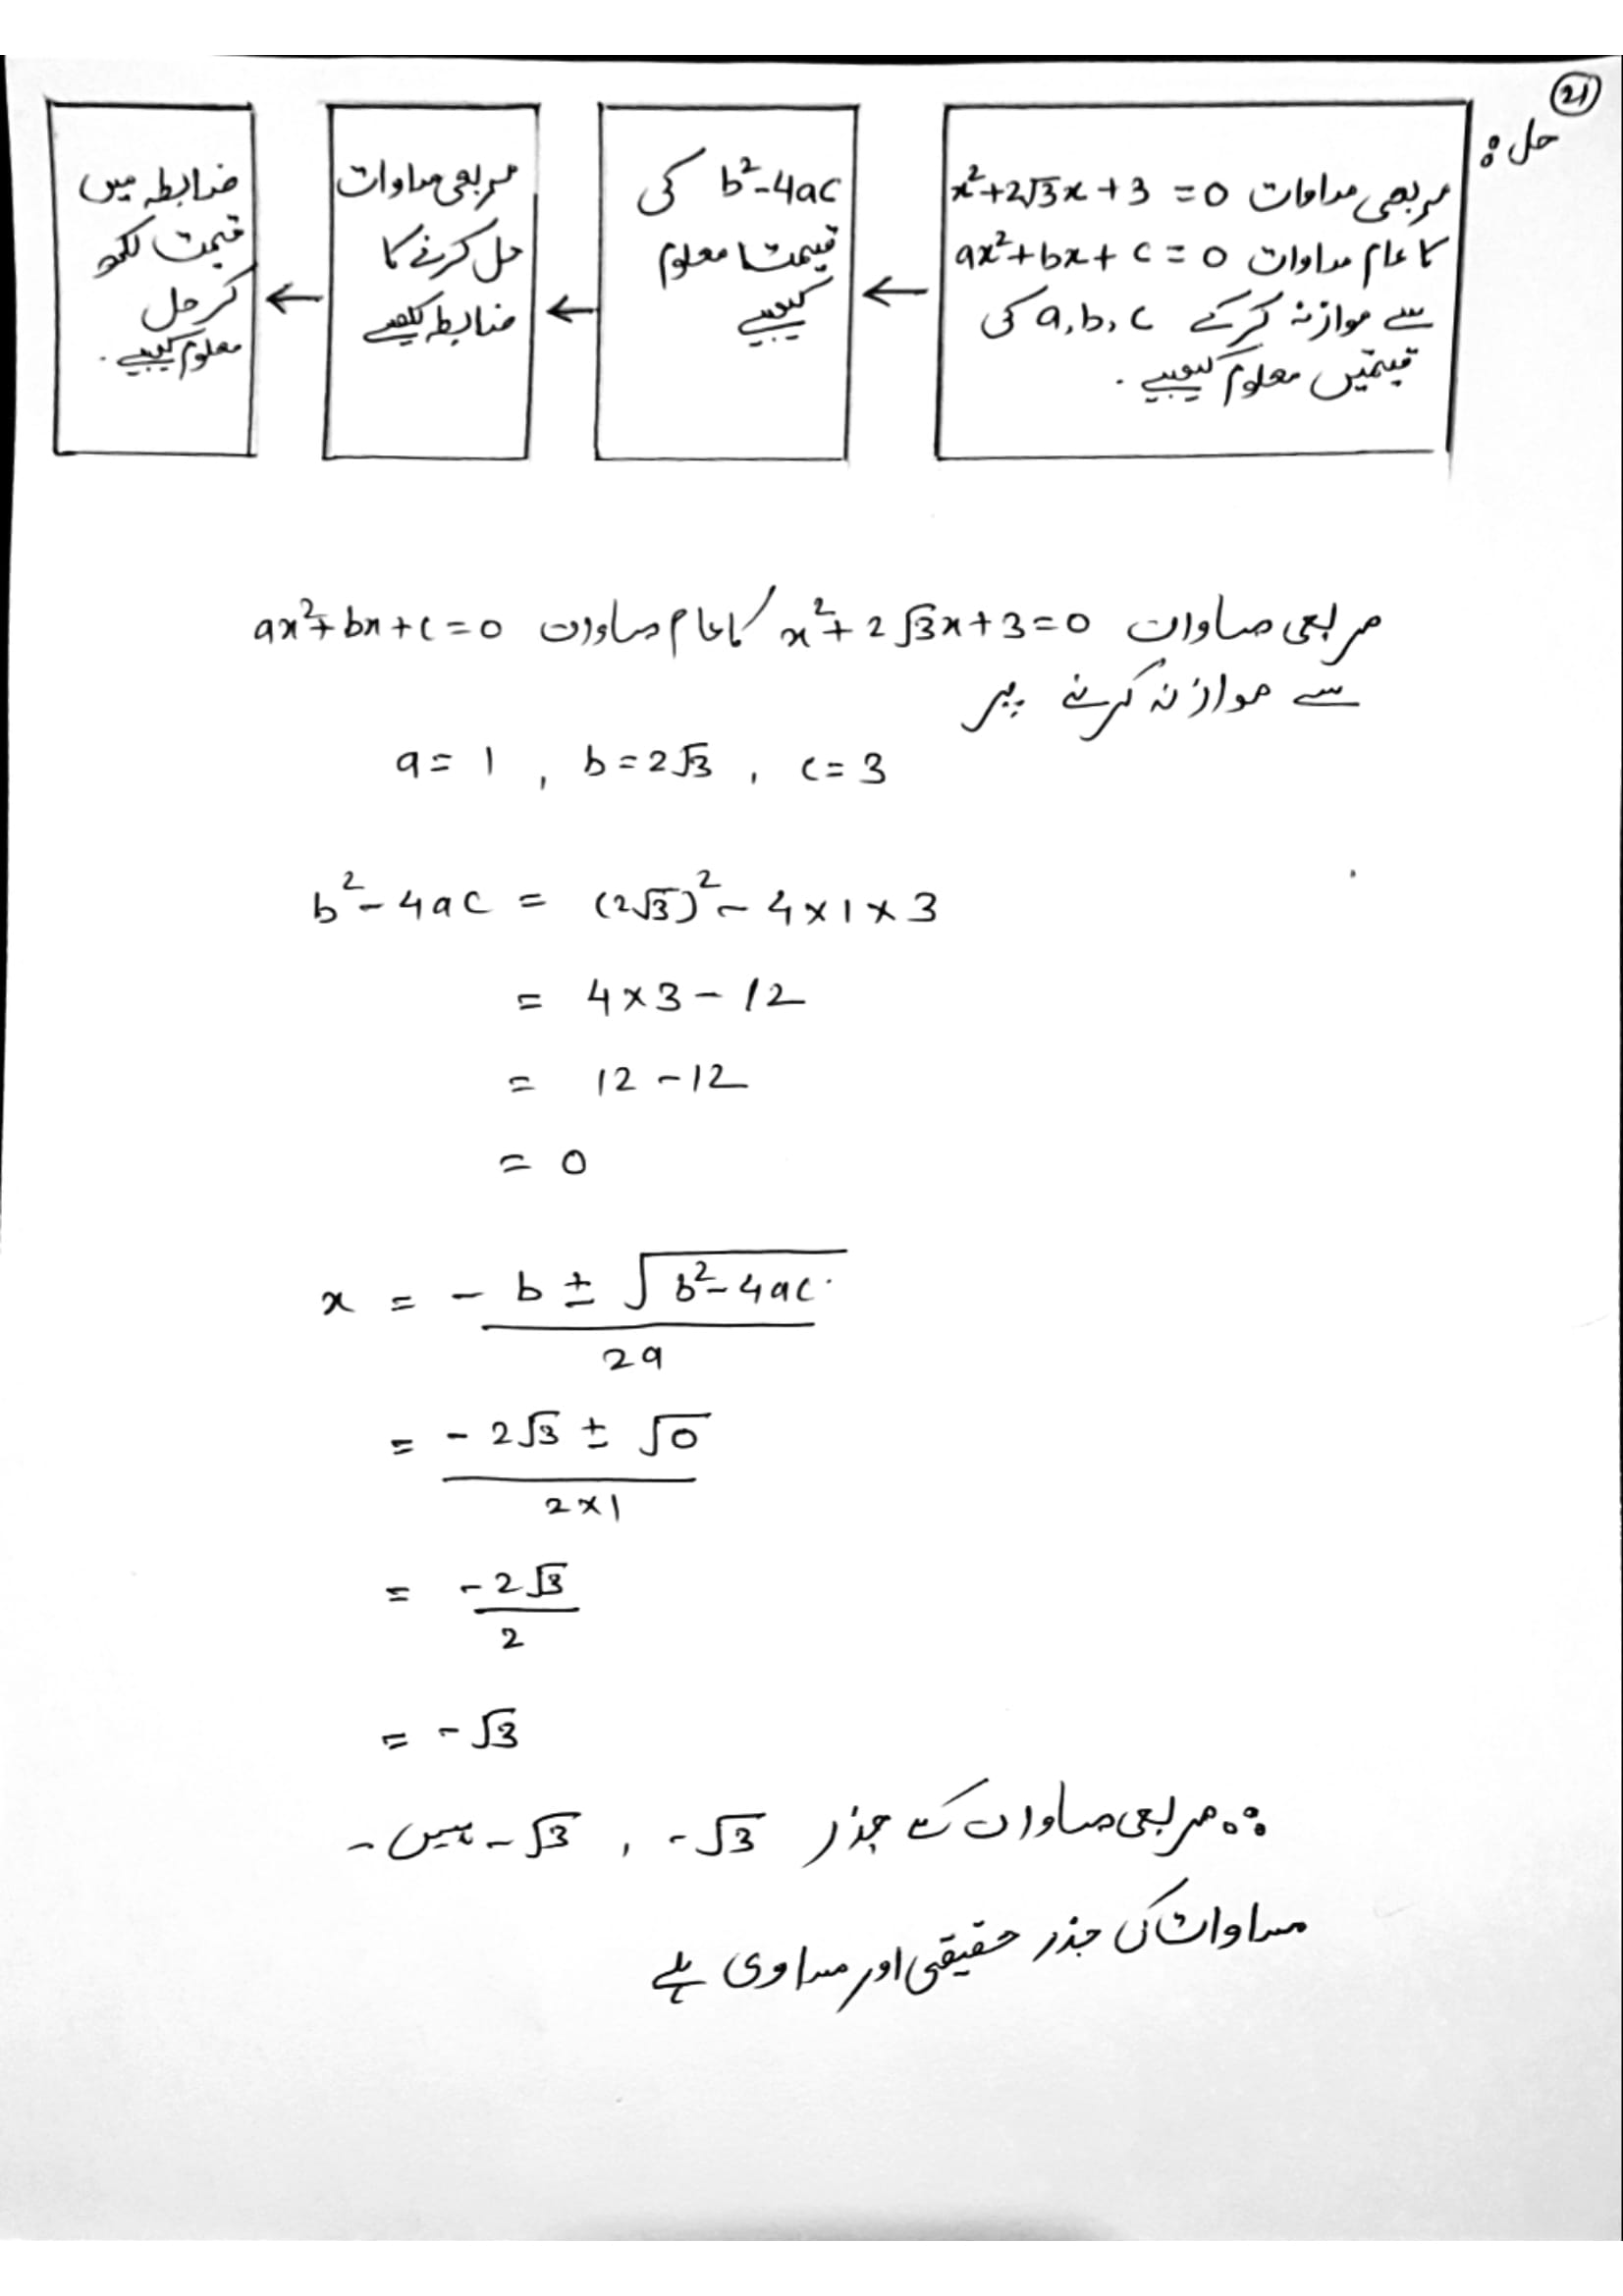 21
حل :
مربعی مساوات x²+2√3x+3 = 0
کا عام مساوات ax²+bx+c = 0
سے موازنہ کرکے a,b,c کی
قیمتیں معلوم کیجیے .
←
b²-4ac کی
قیمت معلوم
کیجیے
←
مربعی مساوات
حل کرنے کا
ضابطہ لکھیے
←
ضابطہ میں
قیمت لکھ
کر حل
معلوم کیجیے .
مربعی مساوات x²+2√3x+3=0 کا عام مساوات ax²+bx+c=0
سے موازنہ کرنے پر
a= 1 , b=2√3 , c= 3
b²-4ac = (2√3)²-4×1×3
= 4×3-12
= 12-12
= 0
x = -b ± √b²-4ac
2a
= -2√3 ± √0
2×1
= -2√3
2
= -√3
∴ مربعی مساوات کے جذر -√3 , -√3 ہیں -
مساوات کی جذر حقیقی اور مساوی ہے